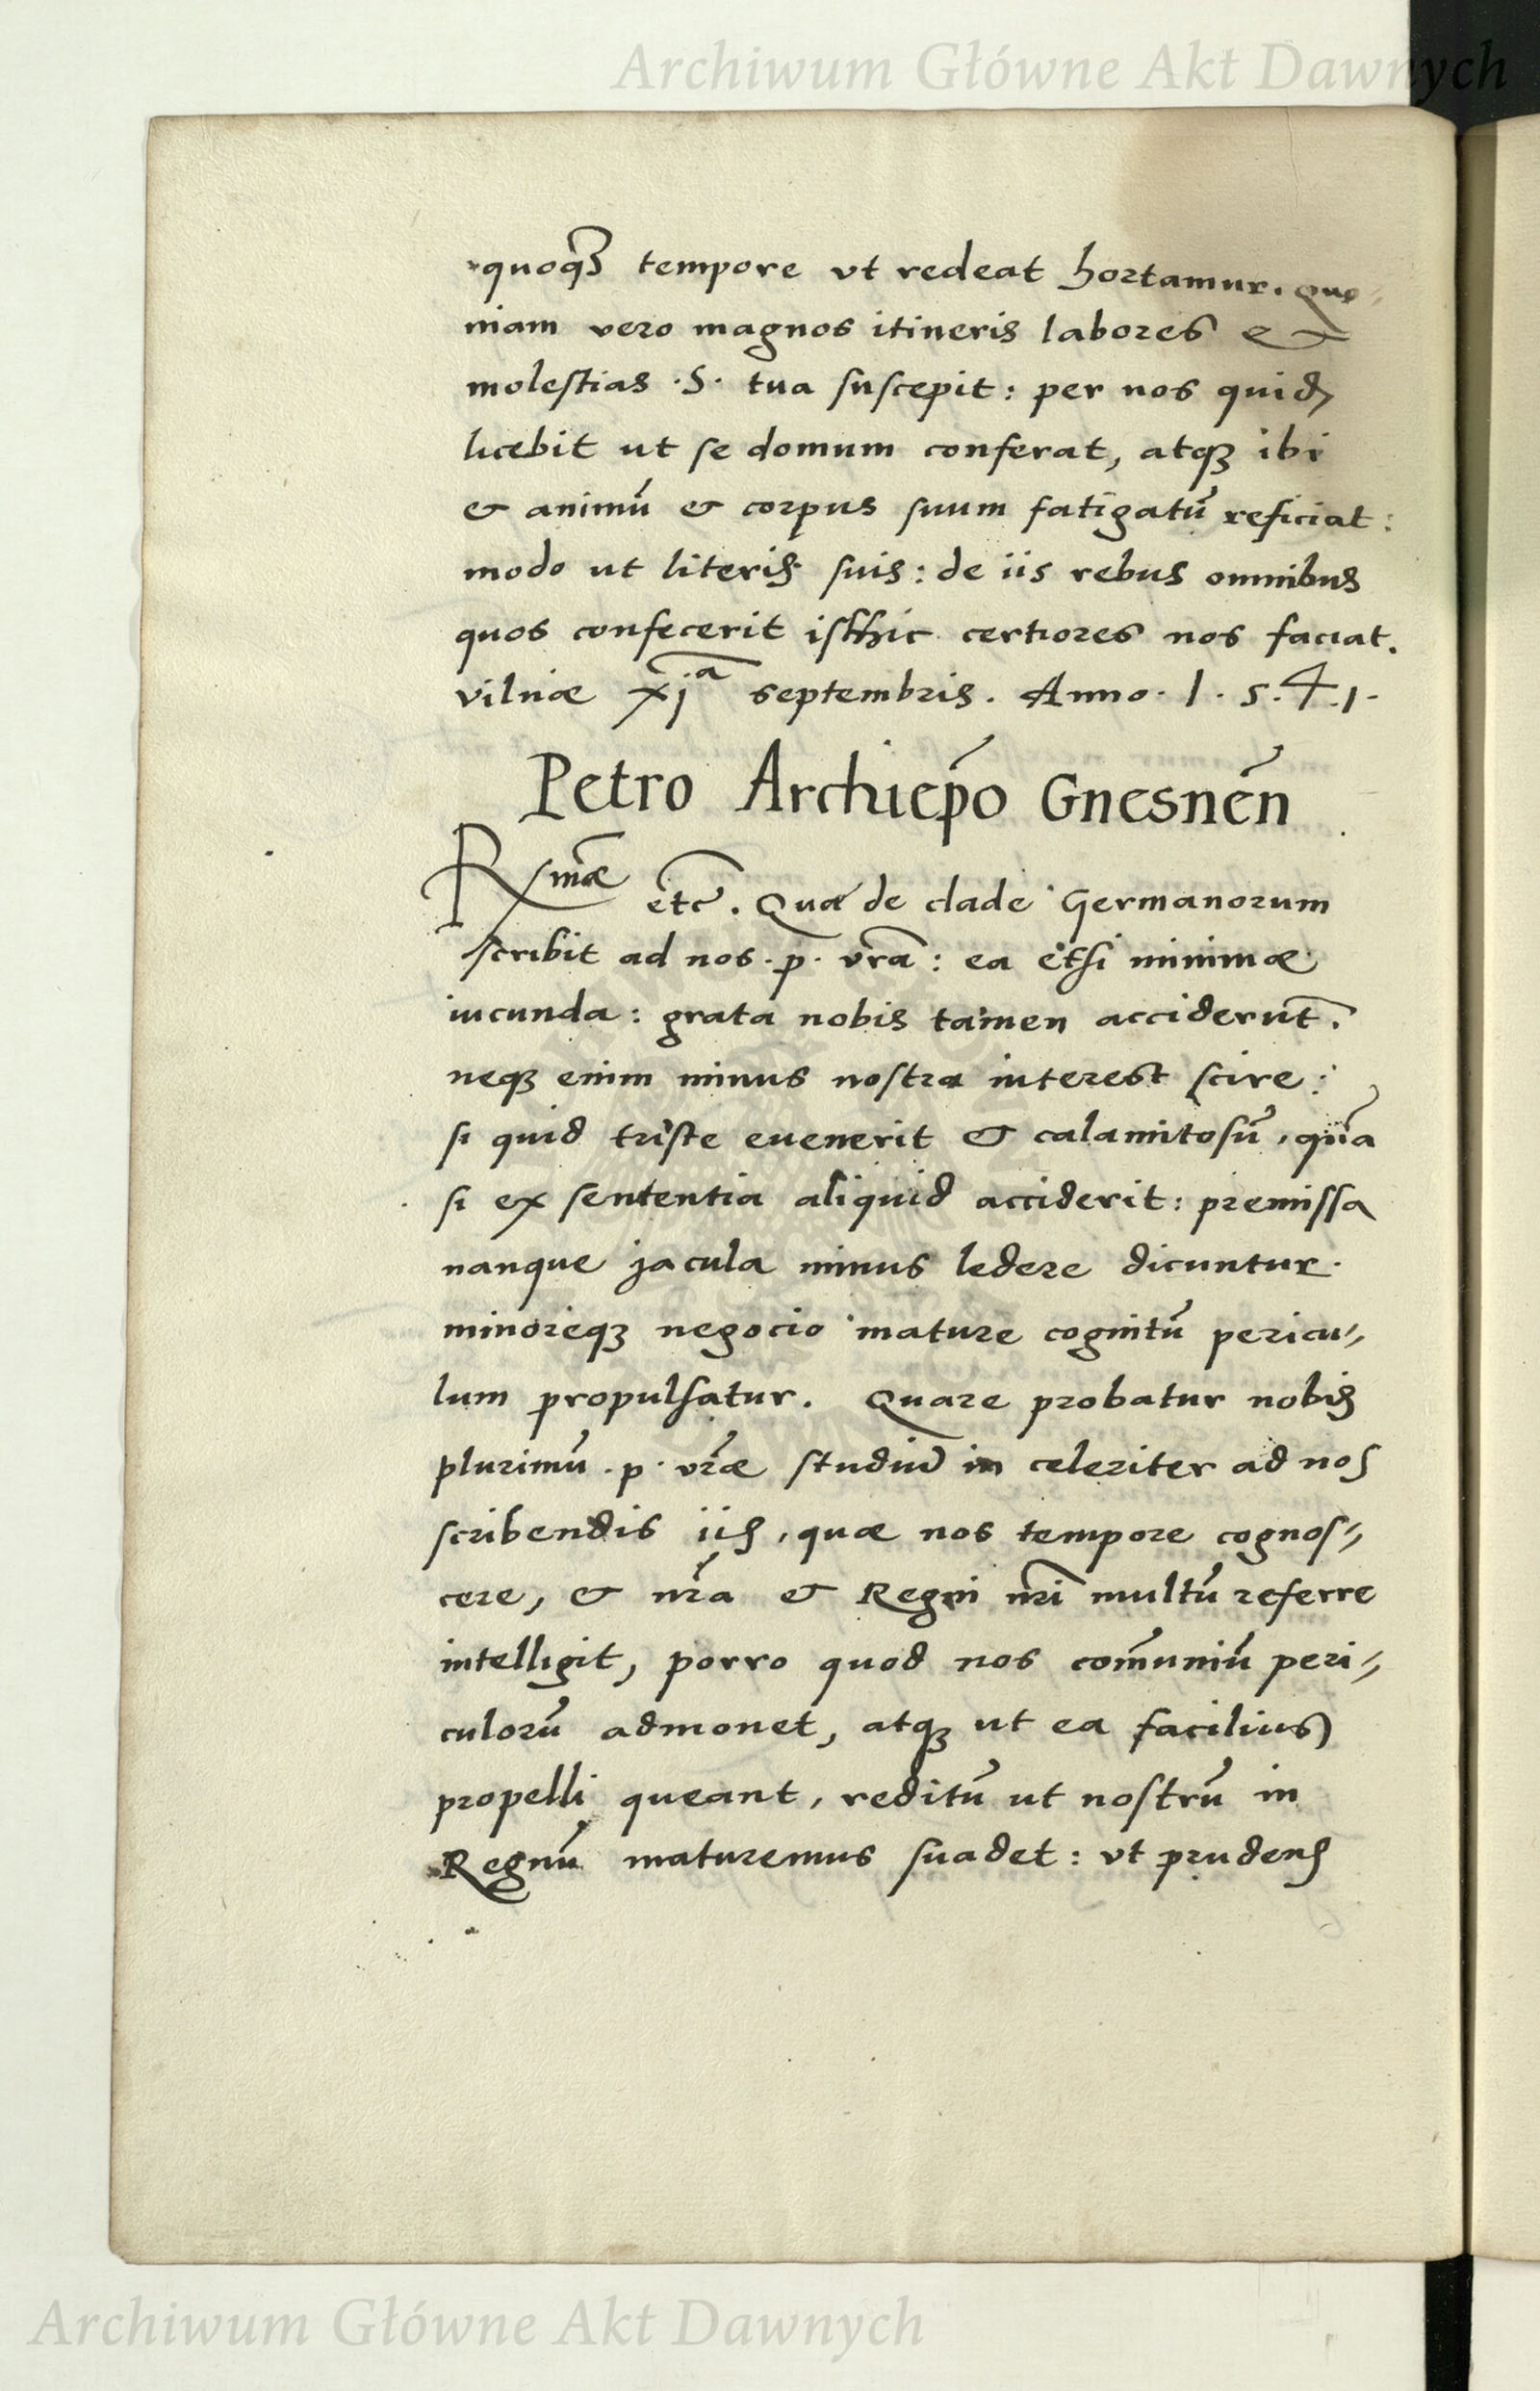 Archiwum Główne Akt Dawnych
quoqꝫ tempore vt redeat hortamur. Quo⸗
niam vero magnos itineris labores &
molestias .S. tua suscepit: per nos quidē
licebit ut se domum conferat, atqꝫ ibi
& animū & corpus suum fatigatū reficiat:
modo ut literis suis: de iis rebus omnibus
quos confecerit isthic certiores nos faciat.
vilnæ xjᵃ septembris. Anno. 1. 5. 4. 1.
Petro Archiep̄o Gnesnēn
Rsmæ etc̄. Quæ de clade Germanorum
scribit ad nos .p. vr̄a: ea etsi minimæ
iucunda: grata nobis tamen acciderūt.
neqꝫ enim minus nostra interest scire:
si quid triste evenerit & calamitosū, quā
si ex sententia aliquid acciderit: premissa
nanque jacula minus ledere dicuntur.
minoreqꝫ negocio mature cognitū pericu⸗
lum propulsatur. Quare probatur nobis
plurimū .p. vr̄æ studiū in celeriter ad nos
scribendis iis, quæ nos tempore cognos⸗
cere, & nr̄a & Regni nr̄i multū referre
intelligit, porro quod nos com̄uniū peri⸗
culorū admonet, atqꝫ ut ea facilius
propelli queant, reditū ut nostrū in
Regnū maturemus suadet: vt prudens
Archiwum Główne Akt Dawnych